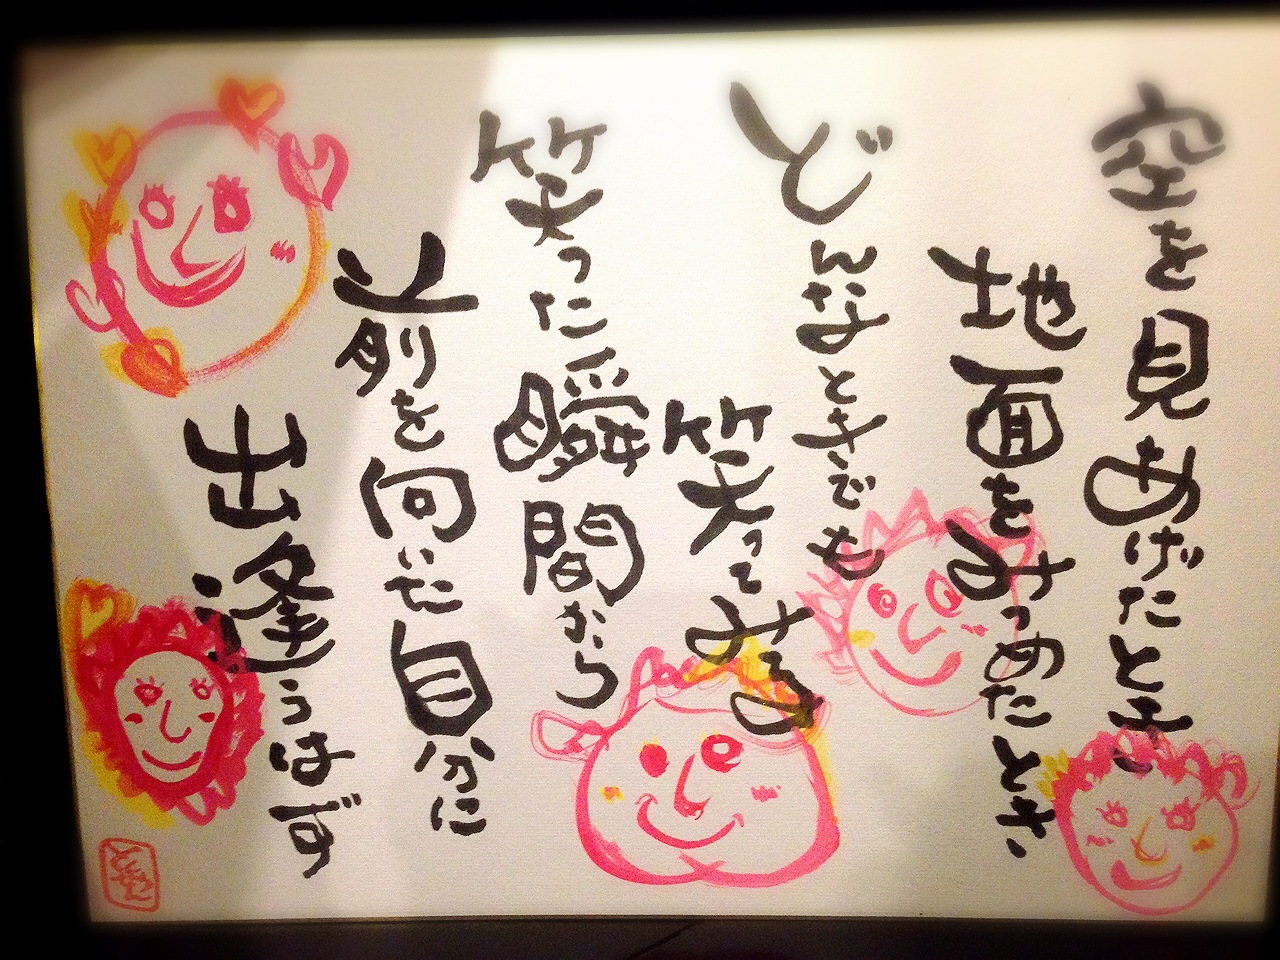 空を見あげたとき
地面をみつめたとき
どんなときでも
笑ってみる
笑った瞬間から
前を向いた自分に
出逢うはず